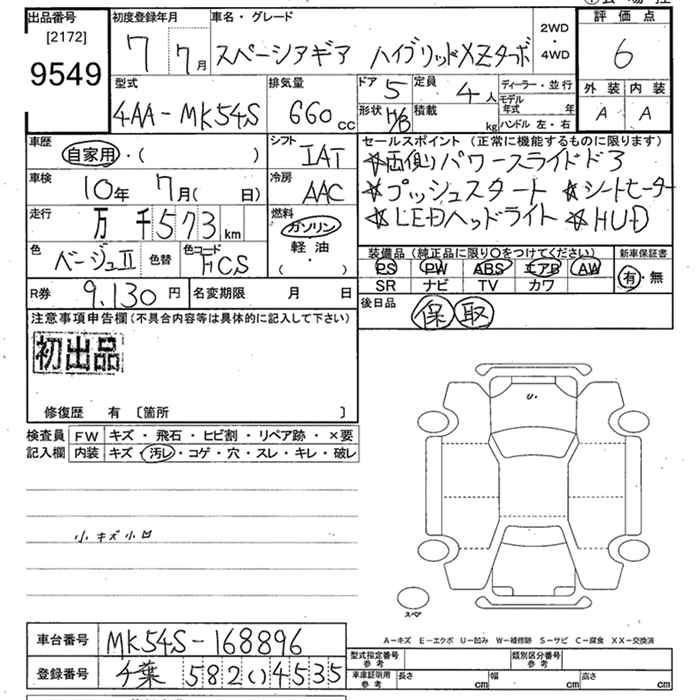 出品番号 [2172] 9549
初度登録年月 7 7月
車名・グレード スペーシアギア ハイブリッドXZターボ
2WD ・ 4WD
評価点 6
外装 A 内装 A
型式 4AA-MK54S
排気量 660 cc
ドア 5 定員 4人
形状 H/B 積載 kg
ディーラー・並行
モデル年式 年
ハンドル 左・右
車歴 自家用・( )
シフト IAT
車検 10年 7月( 日)
冷房 AAC
走行 万 千573 km
燃料 ガソリン 軽油 ( ・ )
色 ベージュII 色替 色コード HCS
セールスポイント (正常に機能するものに限ります)
☆両側パワースライドドア
☆プッシュスタート ☆シートヒーター
☆LEDヘッドライト ☆HUD
装備品 (純正品に限り〇をつけてください)
PS PW ABS エアB AW
SR ナビ TV カワ
新車保証書 有・無
R券 9,130 円 名変期限 月 日
後日品 保 取
注意事項申告欄(不具合内容等は具体的に記入して下さい)
初出品
修復歴 有 〔箇所 〕
検査員記入欄
FW キズ・飛石・ヒビ割・リペア跡・×要
内装 キズ・汚レ・コゲ・穴・スレ・キレ・破レ
小キズ小凹
U.
スペア
A−キズ E−エクボ U−凹み W−補修跡 S−サビ C−腐食 XX−交換済
車台番号 MK54S-168896
登録番号 千葉 582 い 4535
型式指定番号 参考 類別区分番号 参考
車庫証明用 参考 長さ cm 幅 cm 高さ cm